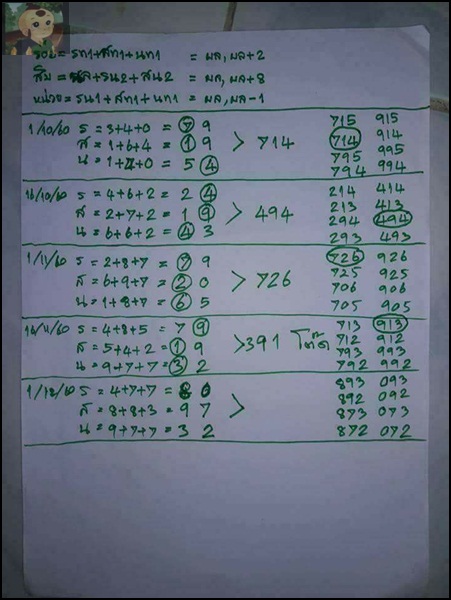 ร้อย = รท1+สท1+นท1 = ผล, ผล+2
สิบ = ผล+รน2+สน2 = ผล, ผล+8
หน่วย = รน1+สท1+นท1 = ผล, ผล-1
1/10/60 ร = 3+4+0 = 7 9
ส = 1+6+4 = 1 9 > 714
น = 1+4+0 = 5 4
715 915
714 914
795 995
794 994
16/10/60 ร = 4+6+2 = 2 4
ส = 2+7+2 = 1 9 > 494
น = 6+6+2 = 4 3
214 414
213 413
294 494
293 493
1/11/60 ร = 2+8+7 = 7 9
ส = 6+9+7 = 2 0 > 726
น = 1+8+7 = 6 5
726 926
725 925
706 906
705 905
16/11/60 ร = 4+8+5 = 7 9
ส = 5+4+2 = 1 9 >391 โต๊ด
น = 9+7+7 = 3 2
713 913
712 912
793 993
792 992
1/12/60 ร = 4+7+7 = 8 0
ส = 8+8+3 = 9 7 >
น = 9+7+7 = 3 2
893 093
892 092
873 073
872 072